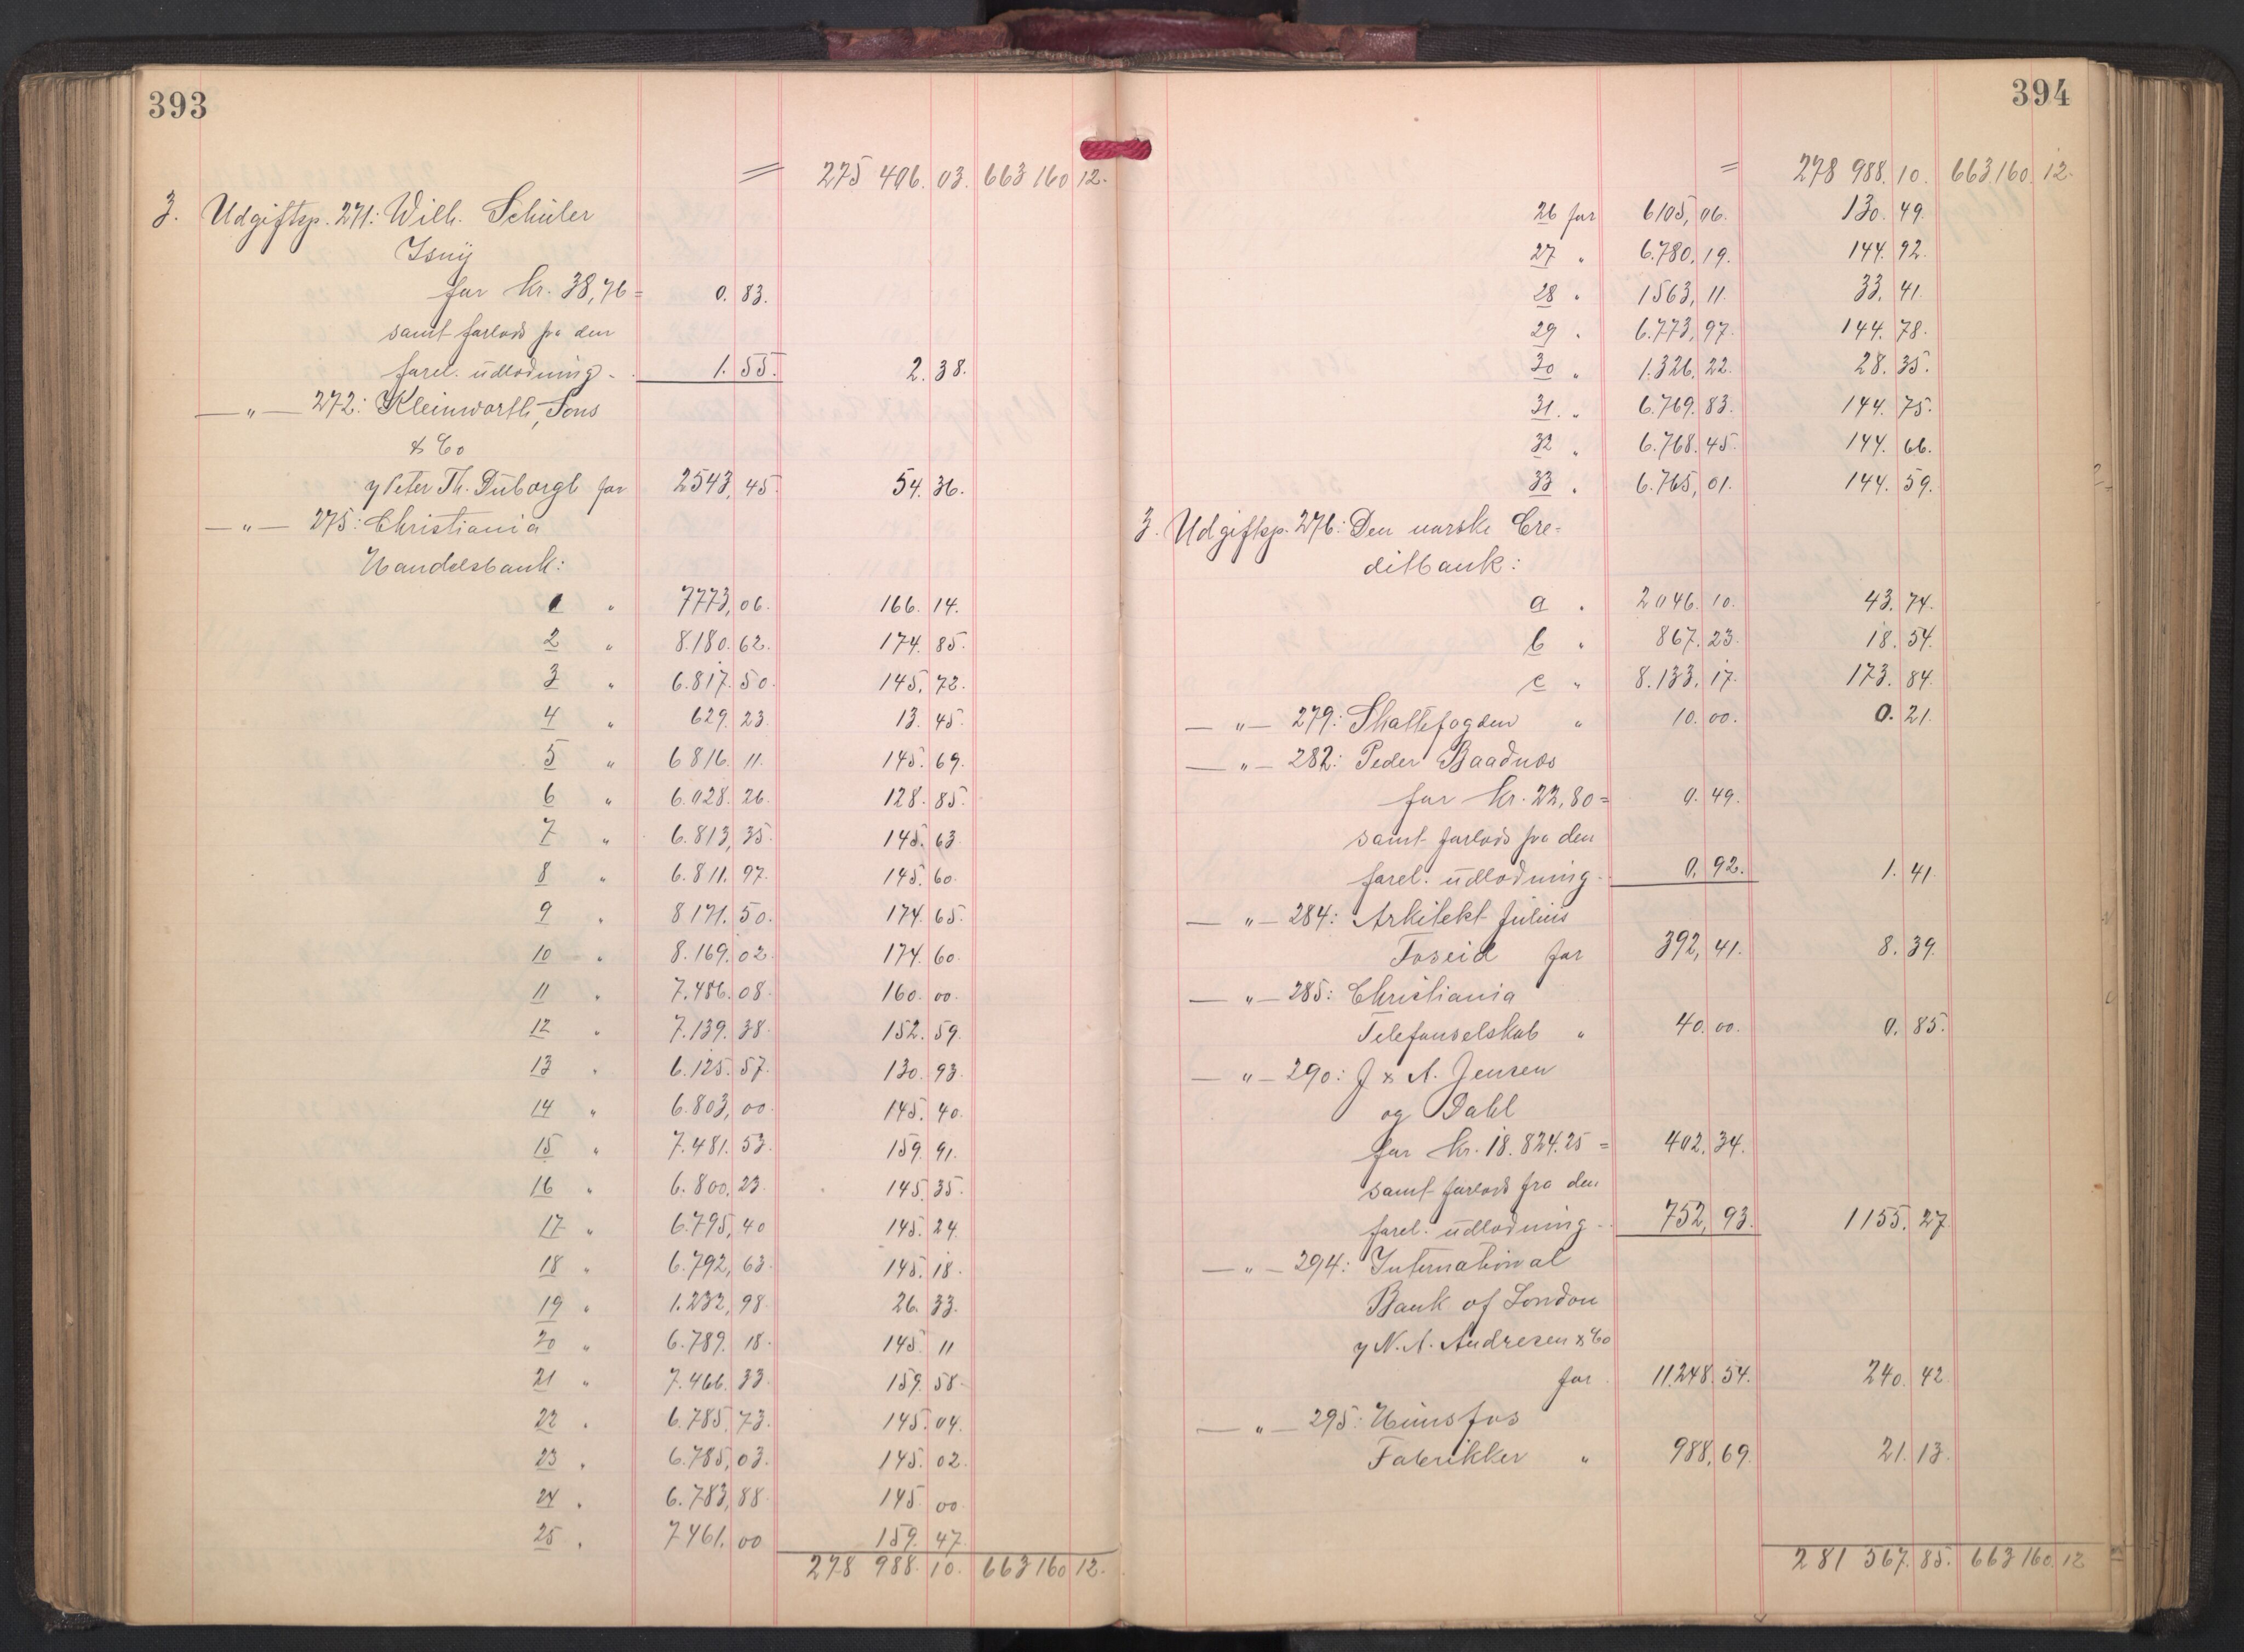 393
= 275 406. 03. 663 160 12.
3. Udgiftsp. 271: Wilh. Schüler
Isny
for kr. 38,76 = 0. 83.
samt forlods fra den
forel. udlodning - 1. 55. 2. 38.
— " — 272: Kleinworth, Sons
& Co
y Peter Th. Duborgh for 2543, 45. 54. 36.
— " — 275: Christiania
Handelsbank:
1 " 7773, 06. 166. 14.
2 " 8.180. 62. 174. 85.
3 " 6.817. 50. 145. 72.
4 " 629. 23. 13. 45.
5 " 6816. 11. 145. 69.
6 " 6.028. 26. 128. 85.
7 " 6.813, 35. 145. 63
8 " 6.811. 97. 145. 60.
9 " 8171. 50. 174. 65.
10 " 8.169. 02. 174. 60.
11 " 7.486. 08. 160. 00.
12 " 7.139. 38. 152. 59.
13 " 6.125. 57. 130. 93.
14 " 6.803, 00. 145. 40.
15 " 7.481. 53. 159. 91.
16 " 6.800, 23. 145. 35.
17 " 6.795, 40 145. 24.
18 " 6.792, 63. 145. 18.
19 " 1.232, 98. 26. 33.
20 " 6.789. 18. 145. 11
21 " 7.466. 33. 159. 58.
22 " 6.785, 73. 145. 04.
23 " 6.785, 03. 145. 02.
24 " 6.783, 88. 145. 00.
25 " 7461. 00 159. 47.
278 988. 10. 663 160 12.
394
= 278 988. 10. 663.160. 12.
26 for 6105, 06. 130. 49.
27 " 6.780, 19. 144. 92.
28 " 1563, 11. 33. 41.
29 " 6.773, 97. 144. 78.
30 " 1.326. 22. 28. 35.
31. " 6.769. 83. 144. 75.
32 " 6.768. 45. 144. 66.
33 " 6.765, 01. 144. 59.
3. Udgiftsp. 276: Den norske Cre-
ditbank:
a " 2046. 10. 43. 74.
b " 867. 23. 18. 54.
c " 8.133, 17. 173. 84.
— " — 279: Skattefogden " 10. 00. 0. 21.
— " — 282: Peder Baadnæs
for kr. 22,80 = 0. 49.
samt forlods fra den
forel. udlodning - 0, 92. 1. 41.
— " — 284: Arkitekt Julius
Foseid for 392, 41. 8. 39.
— " — 285: Christiania
Telefonselskab " 40. 00. 0. 85.
— " — 290: J & A. Jensen
og Dahl
for kr. 18.824.25 = 402. 34.
samt forlods fra den
forel. udlodning - 752, 93. 1155. 27.
— " — 294: International
Bank of London
y N. A. Andresen & Co
for 11.248. 54. 240. 42.
— " — 295: Hunsfos
Fabrikker " 988, 69. 21. 13.
281 367. 85. 663 160. 12